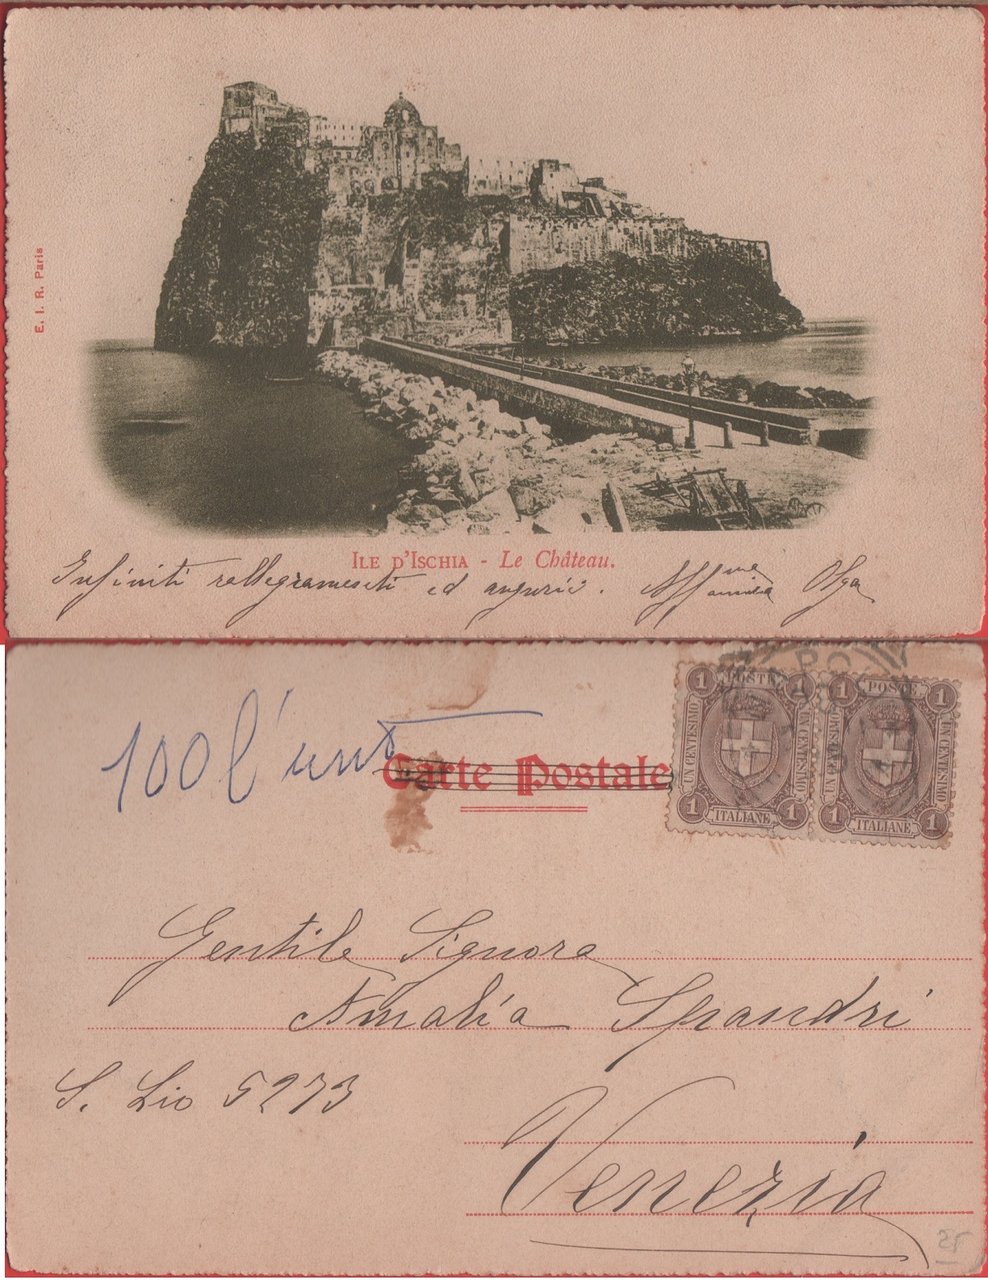 E. I. R. Paris
ILE D'ISCHIA - Le Château.
Infiniti rallegramenti ed augurii. Aff.ma amica Olga
100 l'uno
Carte Postale
1 POSTE 1
UN CENTESIMO
UN CENTESIMO
1 ITALIANE 1
1 POSTE 1
UN CENTESIMO
UN CENTESIMO
1 ITALIANE 1
Gentile Signora
Amalia Spandri
S. Lio 5273
Venezia
25